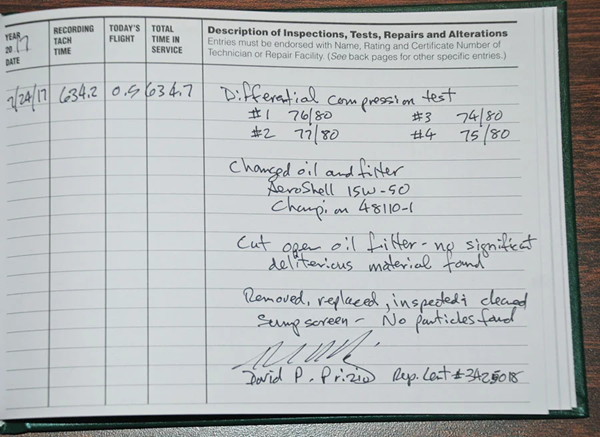 YEAR
20 17
DATE
RECORDING
TACH
TIME
TODAY'S
FLIGHT
TOTAL
TIME IN
SERVICE
Description of Inspections, Tests, Repairs and Alterations
Entries must be endorsed with Name, Rating and Certificate Number of
Technician or Repair Facility. (See back pages for other specific entries.)
2/24/17 634.2 0.5 634.7 Differential compression test
#1 76/80 #3 74/80
#2 77/80 #4 75/80
Changed oil and filter
AeroShell 15W-50
Champion 48110-1
Cut open oil filter - no significat
deliterious material found
Removed, replaced, inspected & cleaned
Sump screen - No particles found
David P. Prizio Rep. Cert #